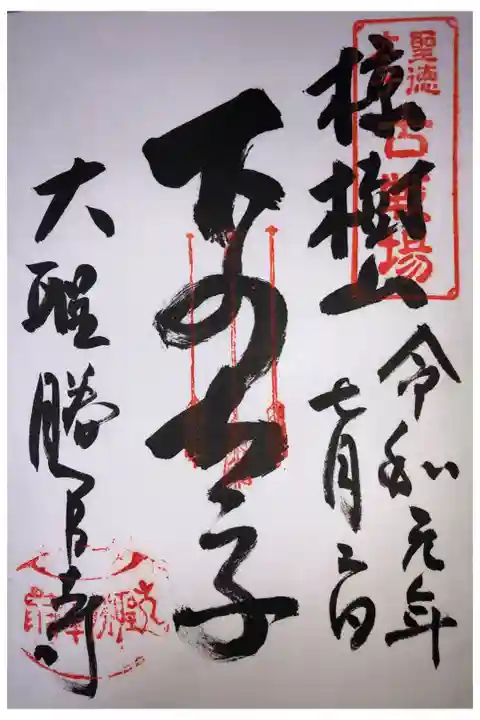 聖徳太子
古戦場
椋樹山
令和元年
七月 日
下の太子
大聖勝軍寺